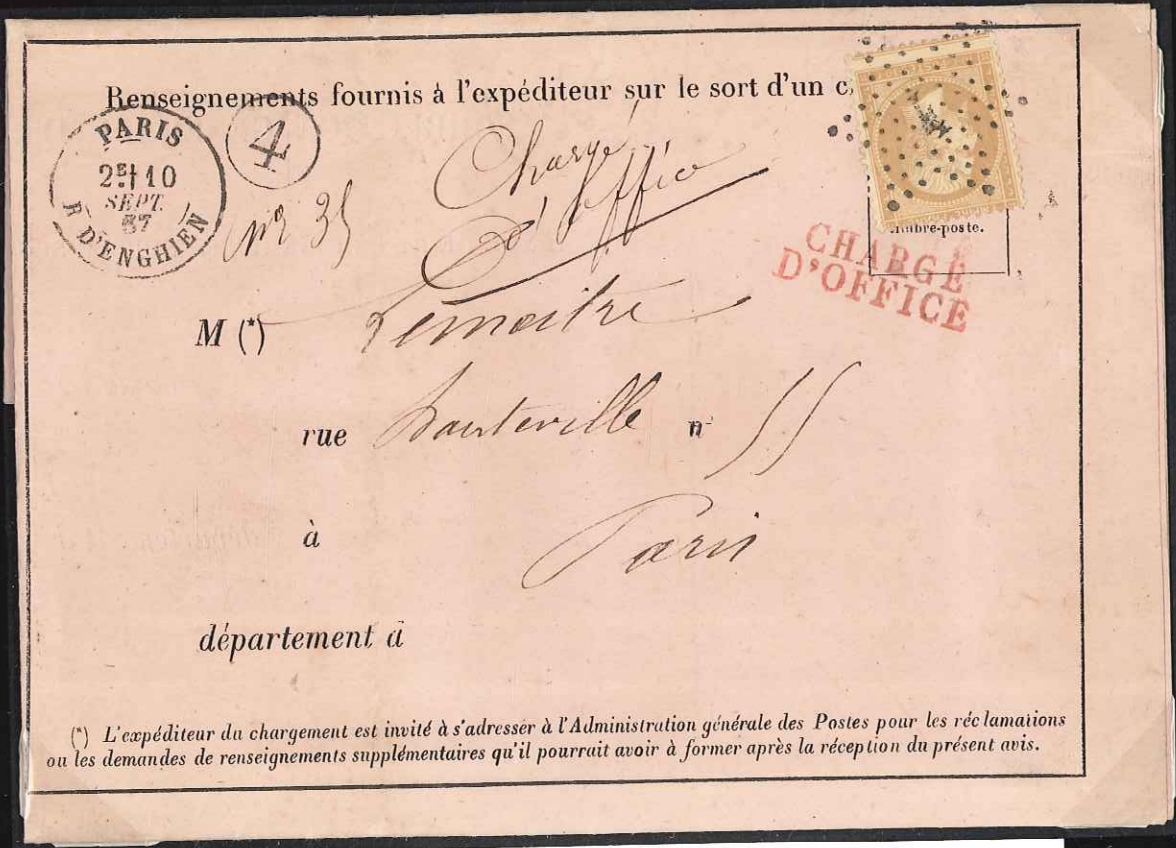 Renseignements fournis à l'expéditeur sur le sort d'un c
PARIS
2E 10
SEPT.
57
R. D'ENGHIEN
4
Chargé
d'office
no 35
timbre-poste.
CHARGÉ
D'OFFICE
M (*) Lemaitre
rue hauteville n° 55
à Paris
département d
(*) L'expéditeur du chargement est invité à s'adresser à l'Administration générale des Postes pour les réclamations
ou les demandes de renseignements supplémentaires qu'il pourrait avoir à former après la réception du présent avis.